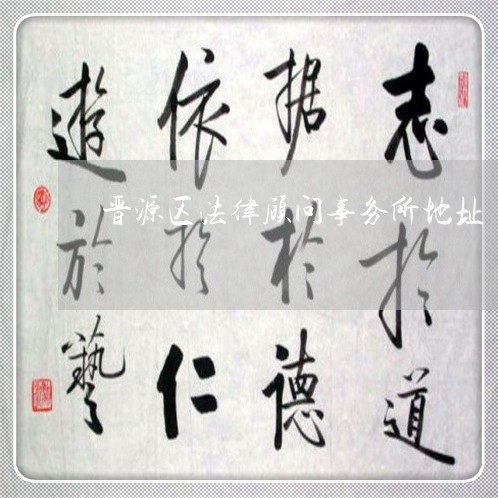 志於道
据於德
依於仁
遊於藝
晋源区法律顾问事务所地址